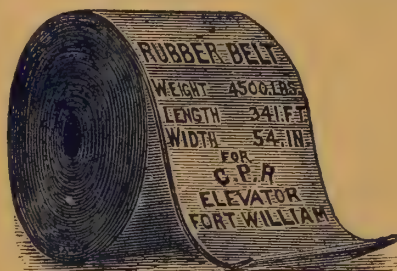 RUBBER BELT
WEIGHT 4500.LBS.
LENGTH 341.FT
WIDTH 54.IN
FOR
C.P.R
ELEVATOR
FORT WILLIAM